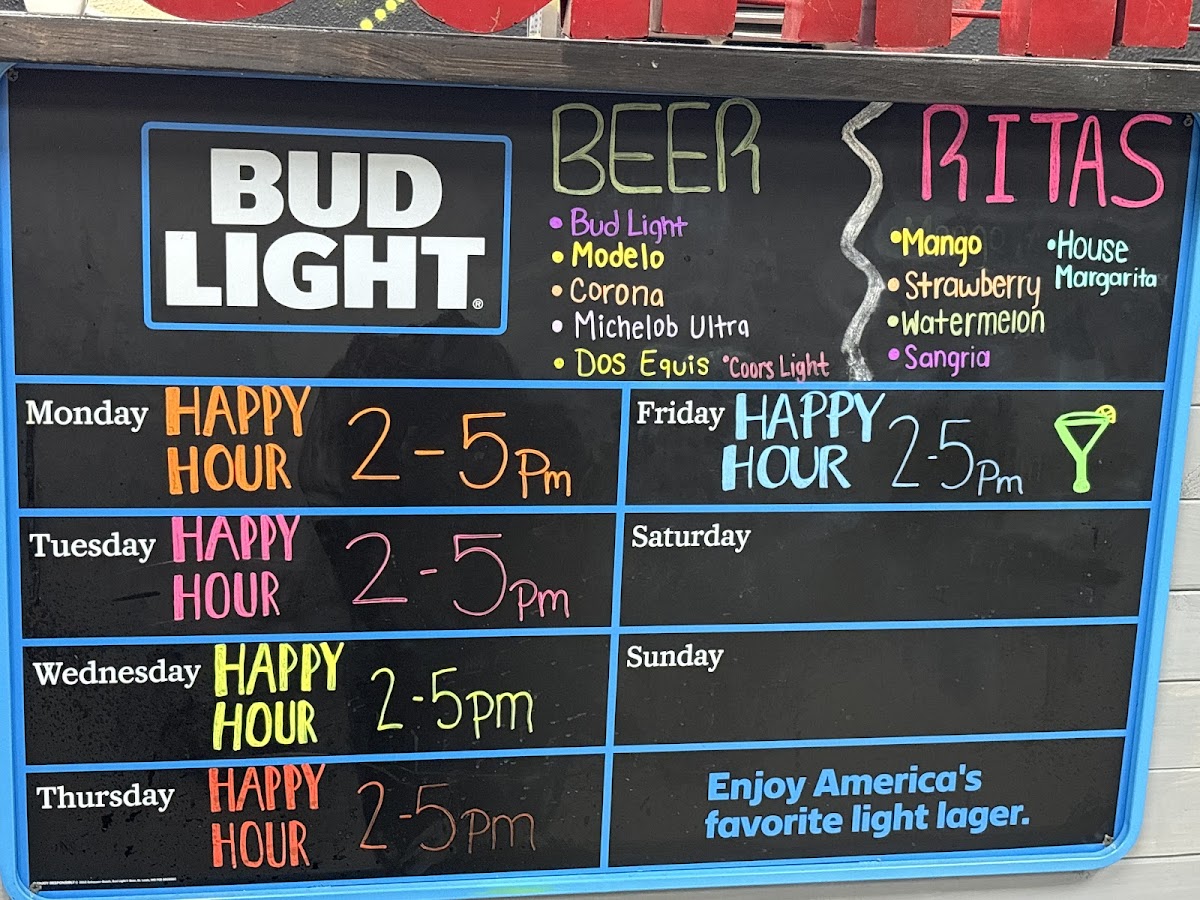 BUD
LIGHT®
BEER
• Bud Light
• Modelo
• Corona
• Michelob Ultra
• Dos Equis •Coors Light
RITAS
•Mango
•Strawberry
•Watermelon
•Sangria
•House
Margarita
Monday HAPPY HOUR 2-5pm
Tuesday HAPPY HOUR 2-5pm
Wednesday HAPPY HOUR 2-5pm
Thursday HAPPY HOUR 2-5pm
Friday HAPPY HOUR 2-5pm
Saturday
Sunday
Enjoy America's
favorite light lager.